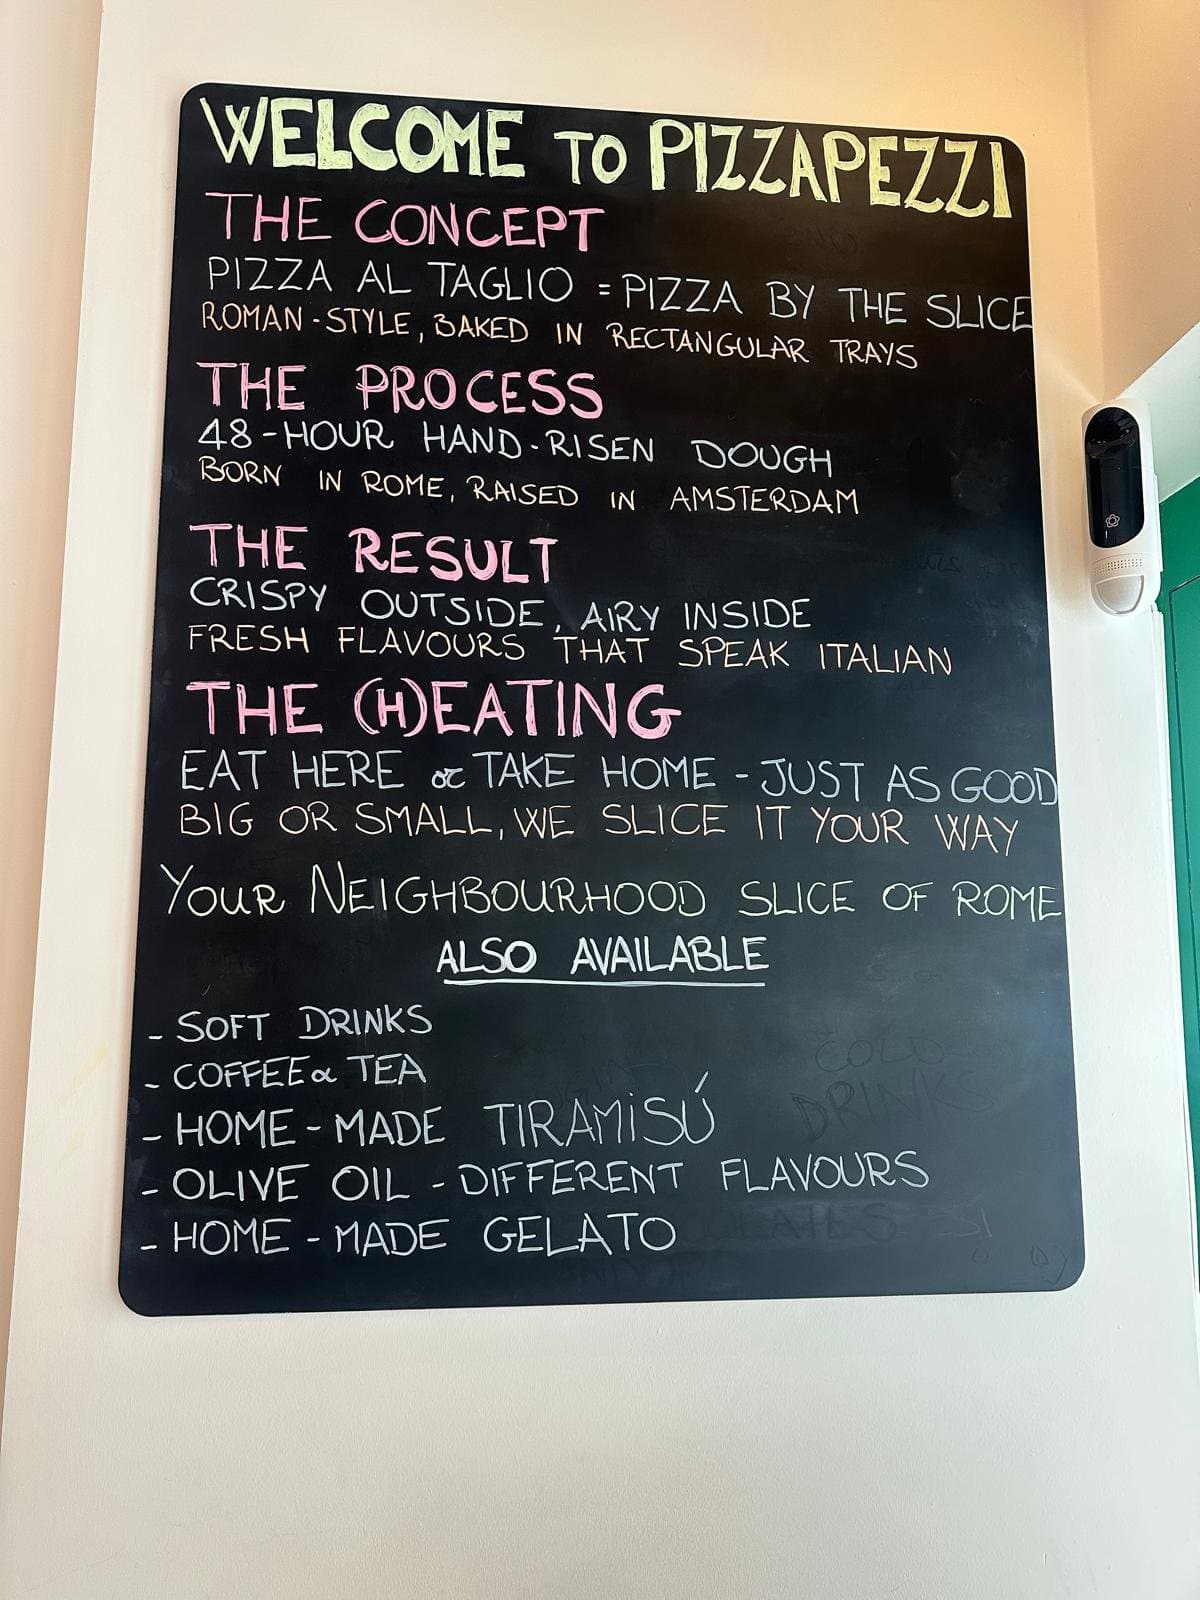 WELCOME TO PIZZAPEZZI
THE CONCEPT
PIZZA AL TAGLIO = PIZZA BY THE SLICE
ROMAN-STYLE, BAKED IN RECTANGULAR TRAYS
THE PROCESS
48-HOUR HAND-RISEN DOUGH
BORN IN ROME, RAISED IN AMSTERDAM
THE RESULT
CRISPY OUTSIDE, AIRY INSIDE
FRESH FLAVOURS THAT SPEAK ITALIAN
THE (H)EATING
EAT HERE or TAKE HOME - JUST AS GOOD
BIG OR SMALL, WE SLICE IT YOUR WAY
YOUR NEIGHBOURHOOD SLICE OF ROME
ALSO AVAILABLE
- SOFT DRINKS
- COFFEE & TEA
- HOME-MADE TIRAMiSÚ
- OLIVE OIL - DIFFERENT FLAVOURS
- HOME-MADE GELATO
COLD
DRINKS